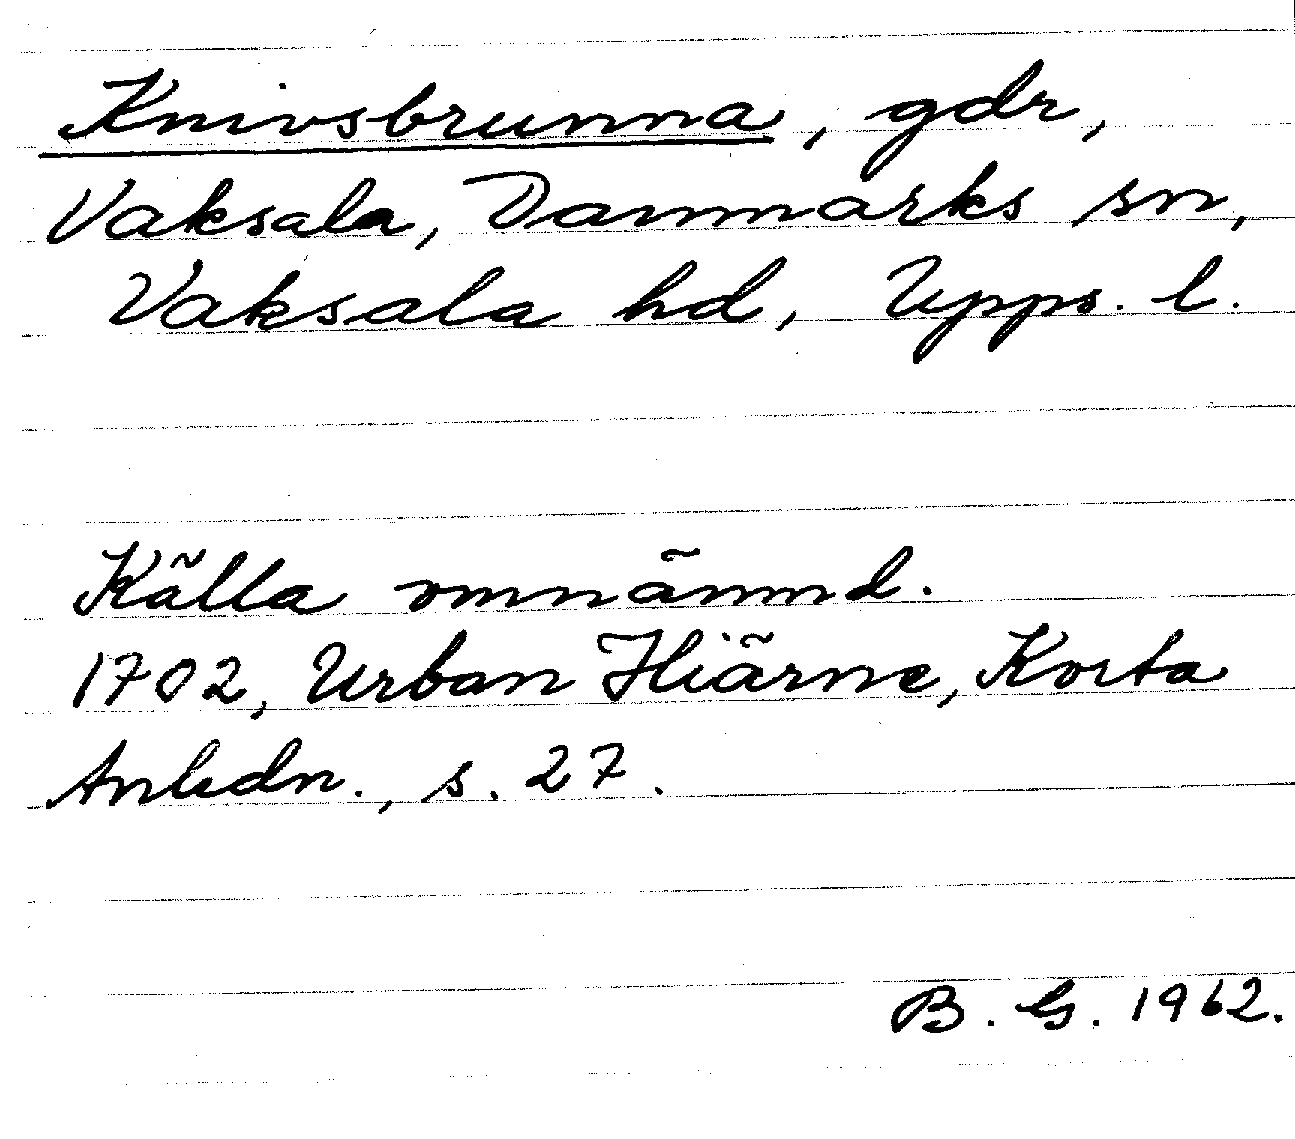 Knivsbrunna, gdr,
Vaksala, Danmarks sn,
Vaksala hd, Upps. l.
Källa omnämnd.
1702, Urban Hiärne, Korta
Anledn., s. 27.
B. G. 1962.